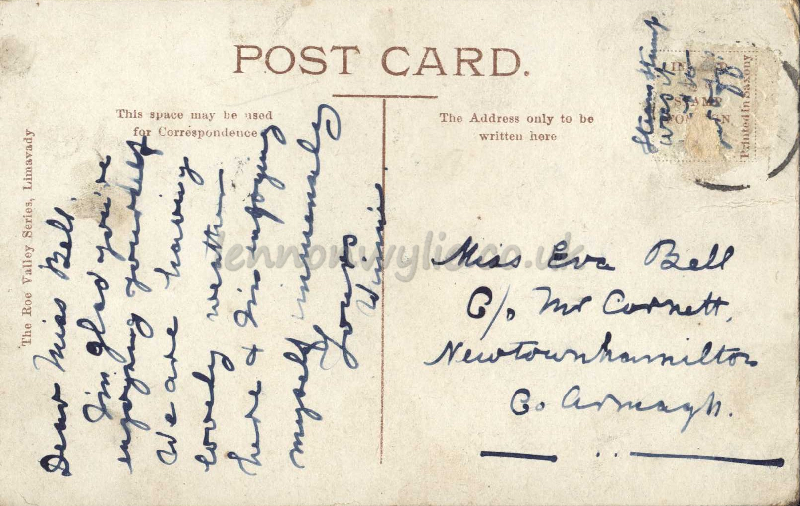 POST CARD.
This space may be used
for Correspondence
The Address only to be
written here
The Roe Valley Series, Limavady
Printed in Saxony
Stamp
was it
Dear Miss Bell,
I'm glad you're
enjoying yourself
We are having
lovely weather
here & I'm enjoying
myself immensely
Yours
Winnie
Miss Eva Bell
C/o Mr Cornett,
Newtownhamilton
Co Armagh.
lennonwylie.co.uk